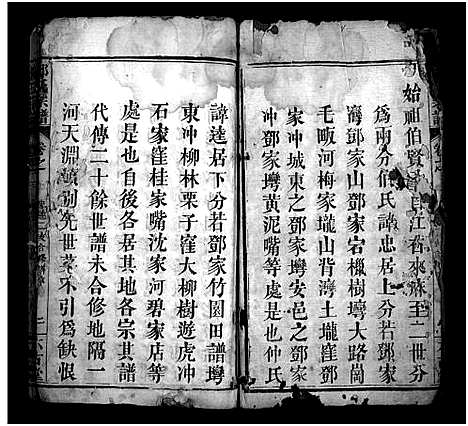 始祖伯賢公自江右來麻至二世分
為兩分伯氏諱忠居上分若鄧家
灣鄧家山鄧家宕樾樹壪大路崗
毛畈河梅家壠山背灣土壠窪鄧
家冲城東之鄧家壪安邑之鄧家
冲鄧家壪黃泥嘴等處是也仲氏
諱達居下分若鄧家竹園田譜壪
東冲柳林栗子窪大柳樹遊虎冲
石家窪桂家嘴沈家河碧家店等
處是也自後各居其地各宗其譜
代傳二十餘世譜未合修地隔一
河天淵頓別先世莫不引為缺恨